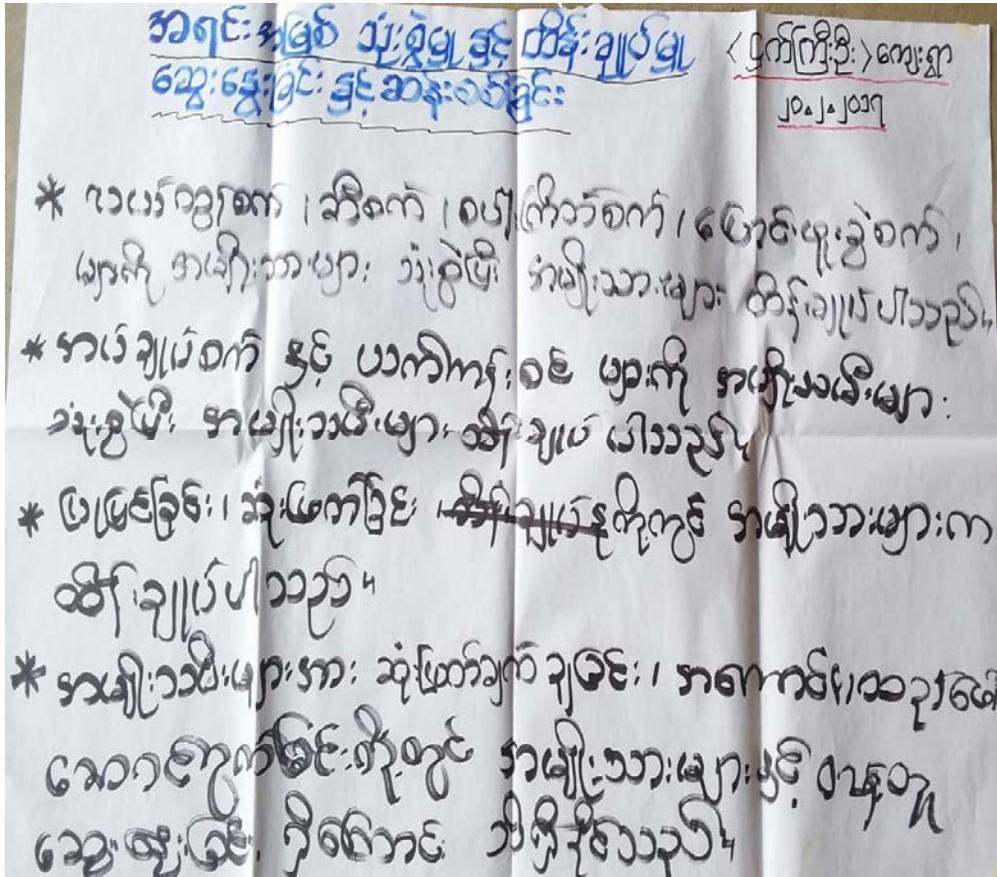 အရင်းအမြစ် သုံးစွဲမှု နှင့် ထိန်းချုပ်မှု
ဆွေးနွေးခြင်း နှင့် ဆန်းစစ်ခြင်း
<ငှက်ကြီးဦး> ကျေးရွာ
၂၀.၂.၂၀၁၇
* လယ်ထွန်စက်၊ ဆီစက်၊ စပါးကြိတ်စက်၊ ပြောင်းဖူးခွဲစက်၊
များကို အမျိုးသားများ သုံးစွဲပြီး အမျိုးသားများ ထိန်းချုပ်ပါသည်။
* အပ်ချုပ်စက် နှင့် ယက်ကန်းစင် များကို အမျိုးသမီးများ
သုံးစွဲပြီး အမျိုးသမီးများ ထိန်းချုပ် ပါသည်။
* ပြုပြင်ခြင်း၊ ဆုံးဖြတ်ခြင်း တို့တွင် အမျိုးသားများက
ထိန်းချုပ်ပါသည်။
* အမျိုးသမီးများအား ဆုံးဖြတ်ချက် ချခြင်း၊
ဆောင်ရွက်ခြင်းတို့တွင် အမျိုးသားများနှင့်
ဆွေးနွေးခြင်း ရှိကြောင်း သိရှိနိုင်သည်။